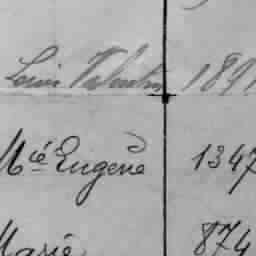 Louis Valentin 1891
Mié Eugène 1347
Marie 874